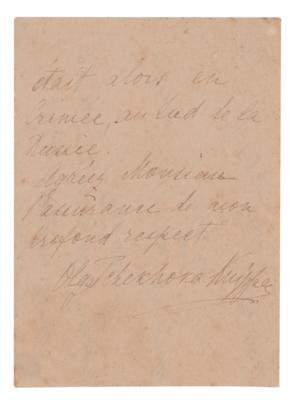 était alors en
Crimée, au Sud de la
Russie.
Agréez Monsieur
l'assurance de mon
profond respect.
Olga Tchekhova Knipper